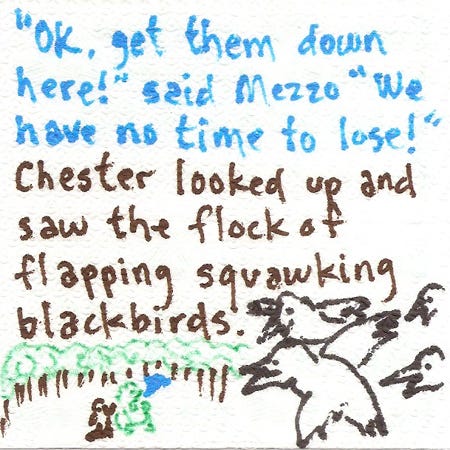 "OK, get them down
here!" said Mezzo "We
have no time to lose!"
Chester looked up and
saw the flock of
flapping squawking
blackbirds.